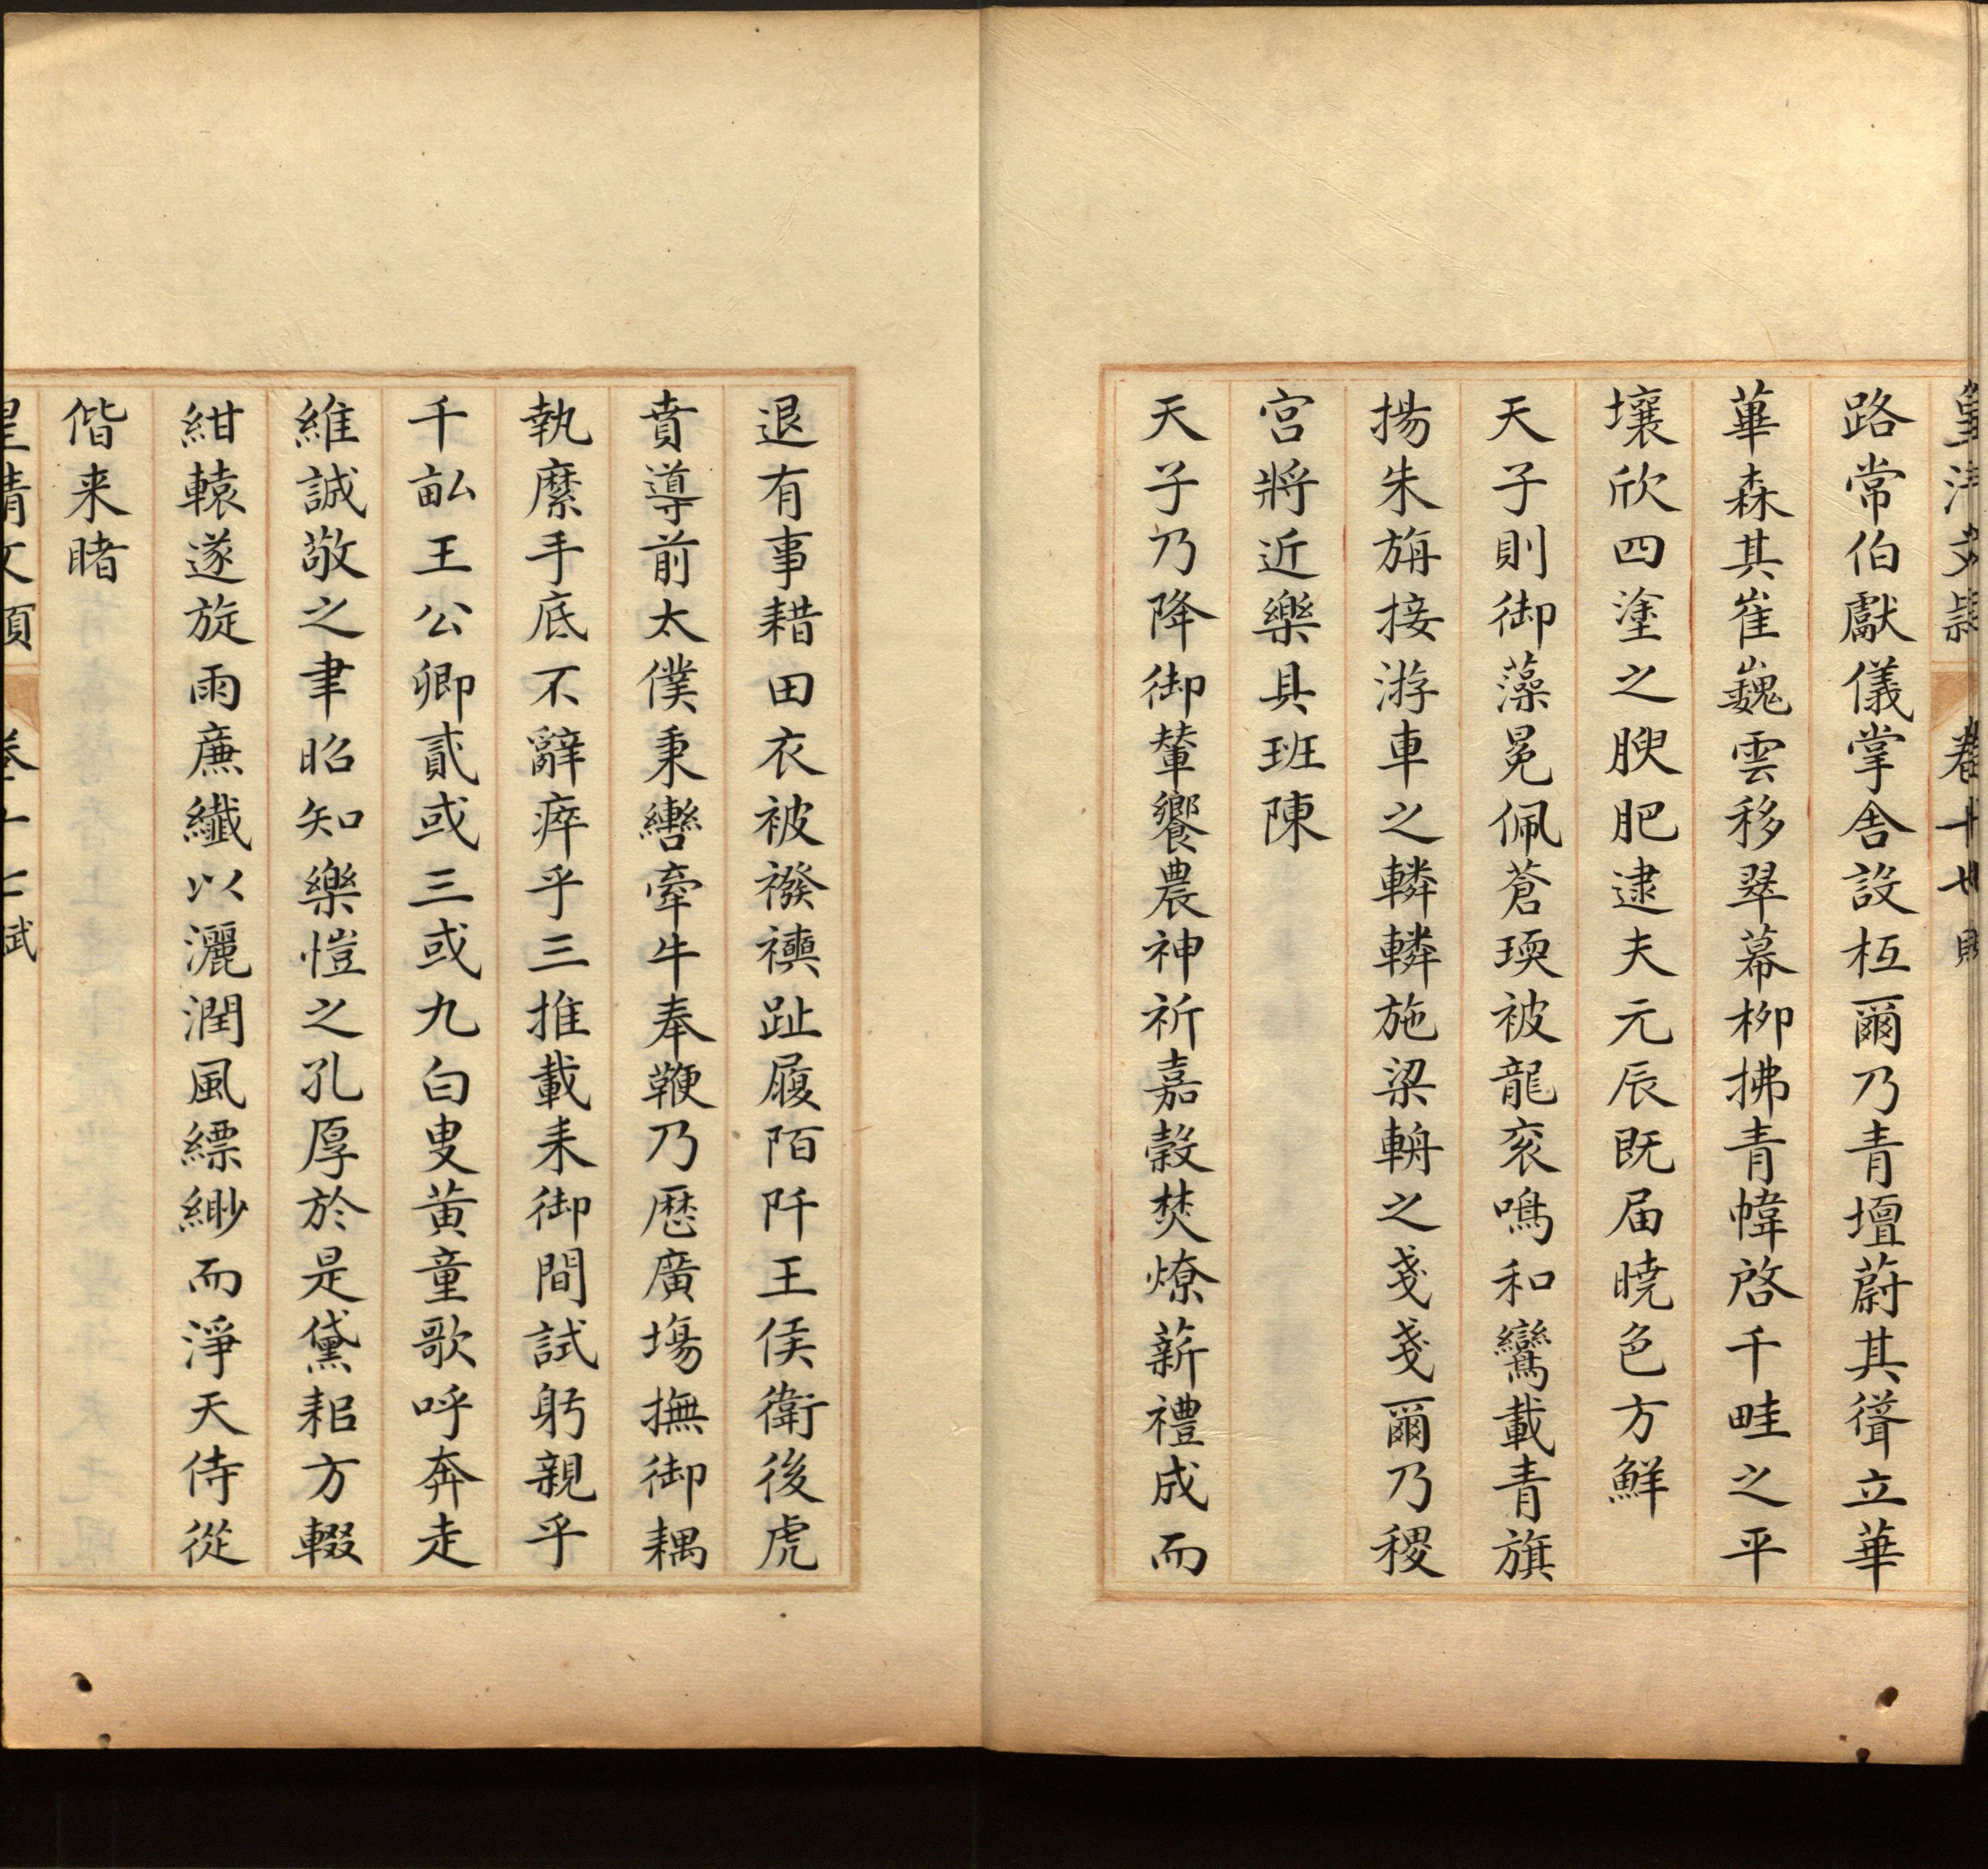 皇清文穎 卷十七 賦
路常伯獻儀掌舎設枑爾乃青壇蔚其聳立華
華森其崔巍雲移翠幕柳拂青幃啓千畦之平
壤欣四塗之腴肥逮夫元辰既届曉色方鮮
天子則御藻冕佩蒼瑌被龍衮鳴和鸞載青旗
揚朱旃接游車之轔轔施梁輈之戔戔爾乃稷
宮將近樂具班陳
天子乃降御輦饗農神祈嘉榖焚燎薪禮成而
退有事耤田衣被襏襫趾履陌阡王侯衛後虎
賁導前太僕秉轡牽牛奉鞭乃歴廣塲撫御耦
執縻手底不辭瘁乎三推載耒御間試躬親乎
千畝王公卿貳或三或九白叟黄童歌呼奔走
維誠敬之聿昭知樂愷之孔厚於是黛耜方輟
紺轅遂旋雨亷纎以灑潤風縹緲而淨天侍從
偕来睹
皇清文穎 卷十七 賦